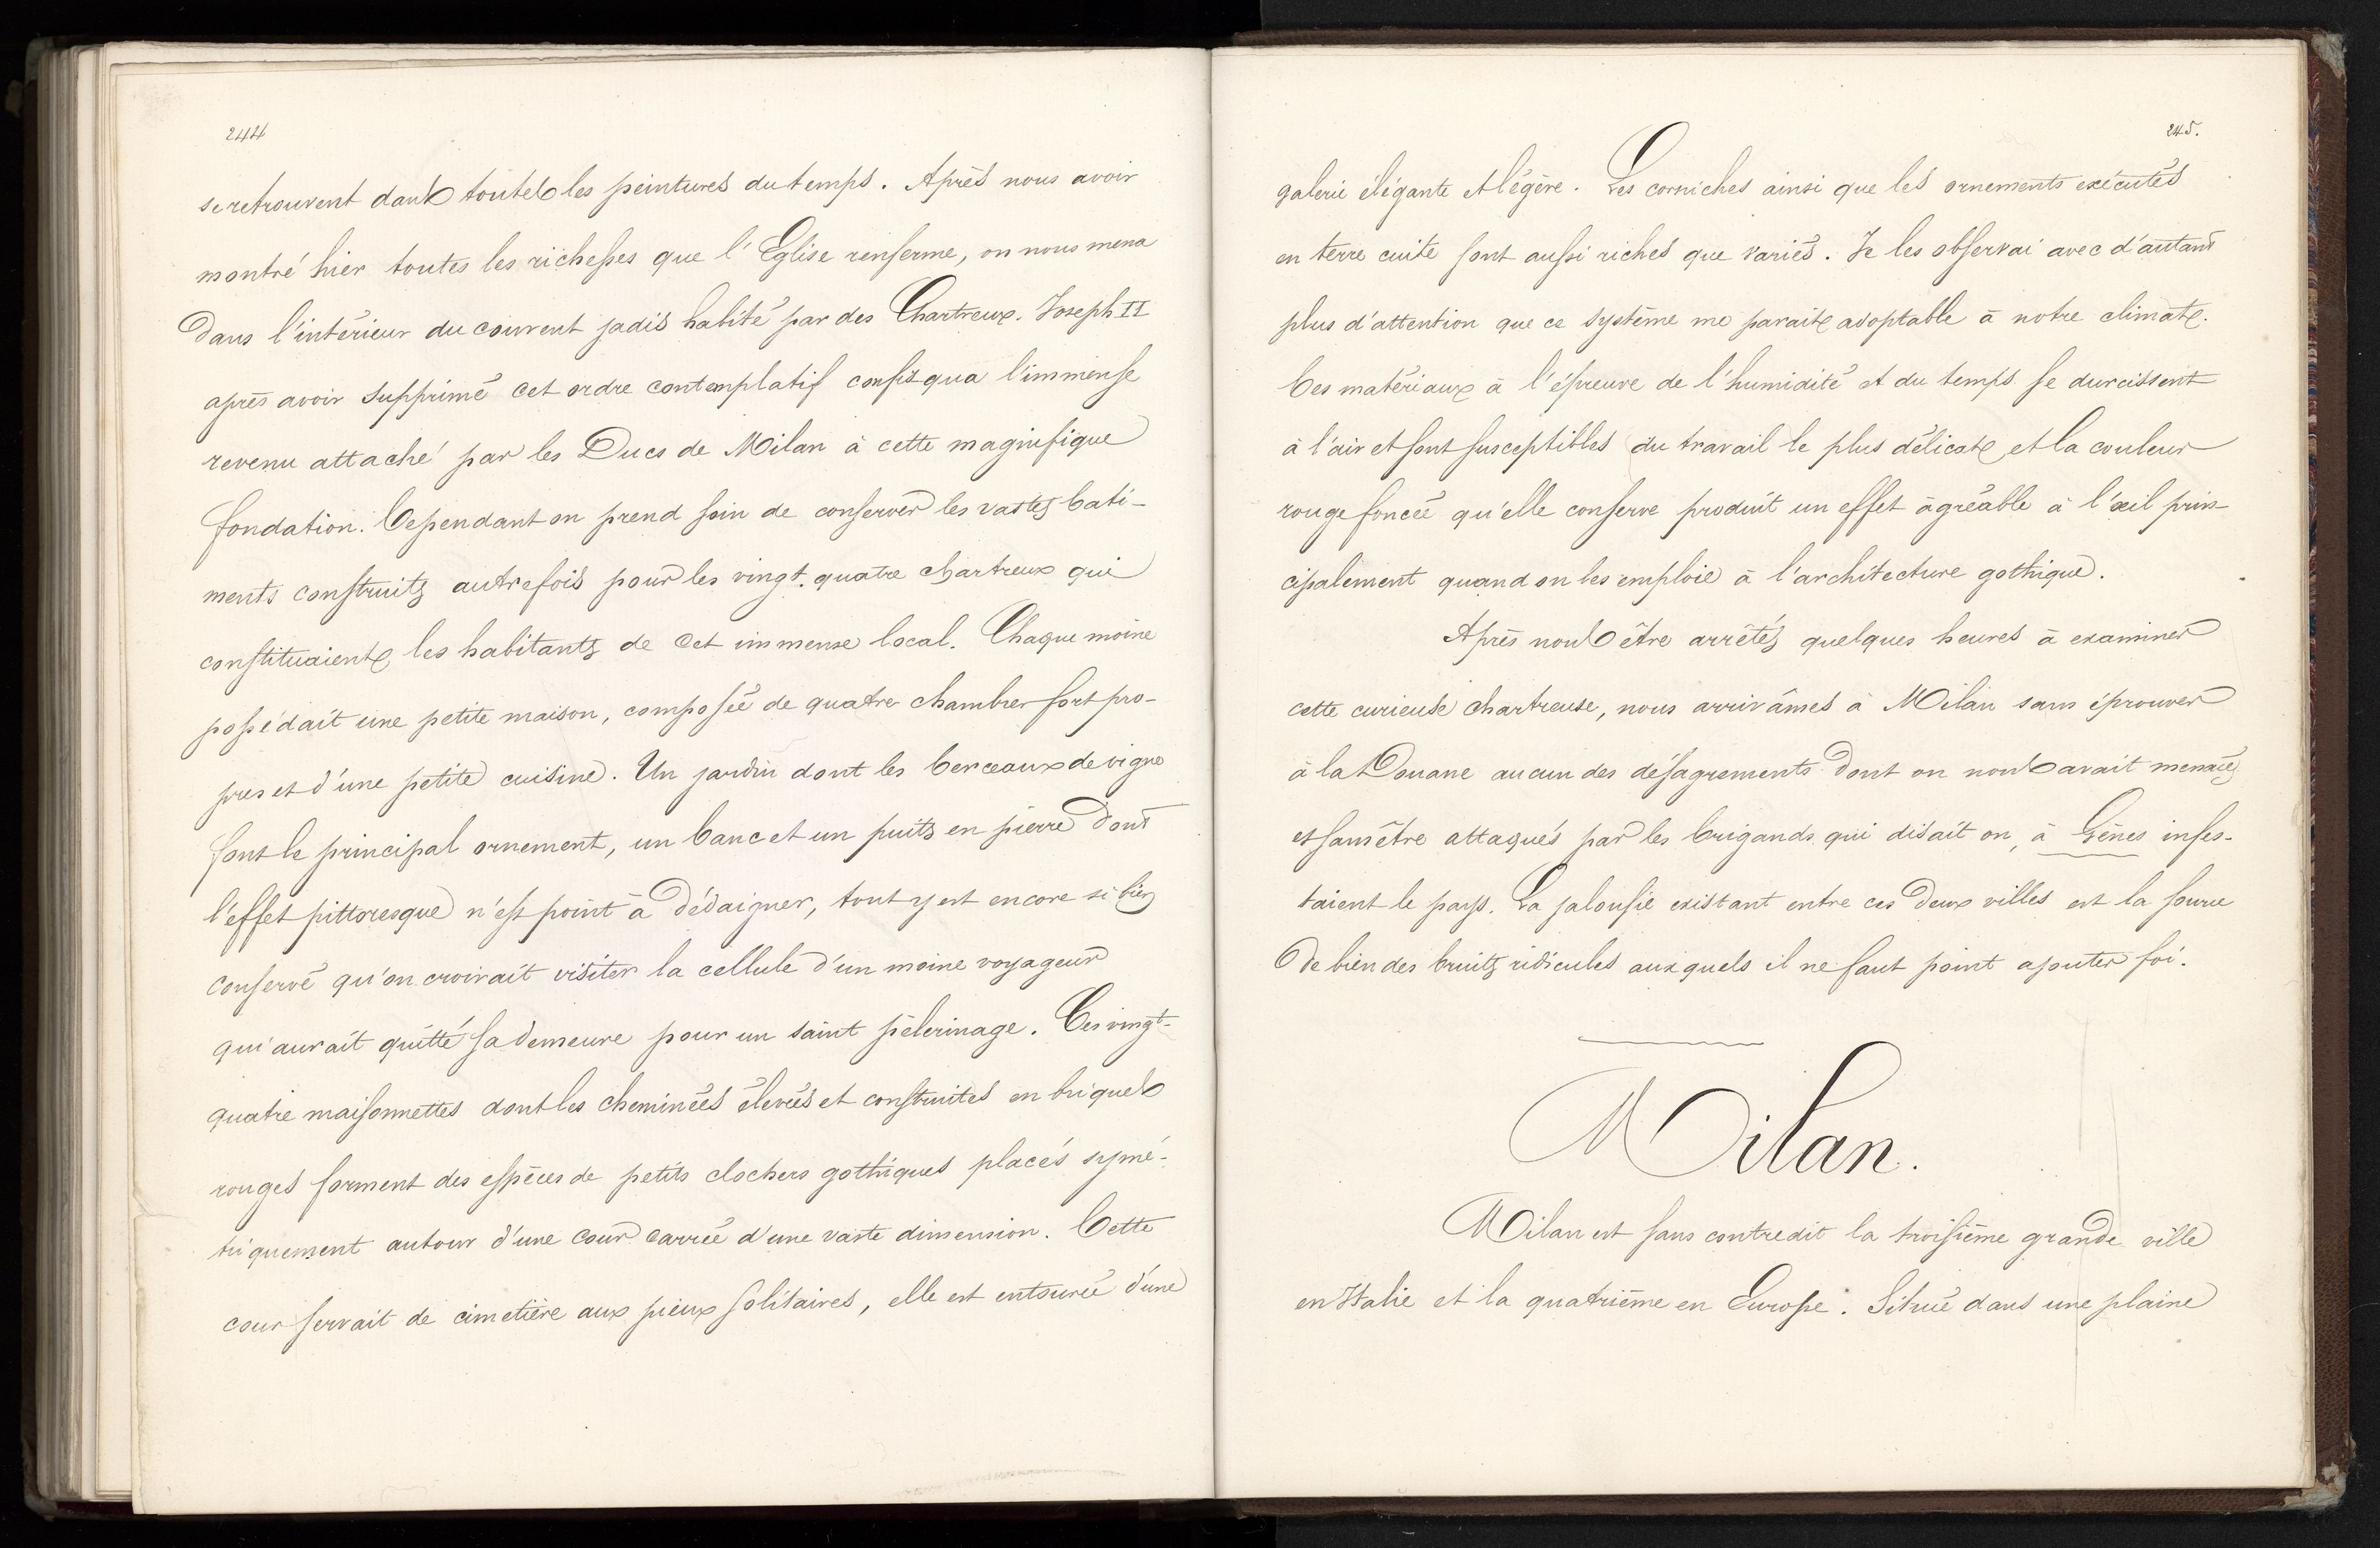 244
se retrouvent dans toutes les peintures du temps. Après nous avoir
montré hier toutes les richesses que l'Eglise renferme, on nous mena
dans l'intérieur du couvent jadis habité par des Chartreux. Joseph II
après avoir supprimé cet ordre contemplatif confisqua l'immense
revenu attaché par les Ducs de Milan à cette magnifique
fondation. Cependant on prend soin de conserver les vastes bati-
ments construits autrefois pour les vingt-quatre chartreux qui
constituaient les habitants de cet immense local. Chaque moine
possédait une petite maison, composée de quatre chambres fort pro-
pres et d'une petite cuisine. Un jardin dont les berceaux de vigne
font le principal ornement, un banc et un puits en pierre dont
l'effet pittoresque n'est point à dédaigner, tout y est encore si bien
conservé qu'on croirait visiter la cellule d'un moine voyageur
qui aurait quitté sa demeure pour un saint pélerinage. Ces vingt-
quatre maisonnettes dont les cheminées élevées et construites en briques
rouges forment des espèces de petits clochers gothiques placés symé-
triquement autour d'une cour carrée d'une vaste dimension. Cette
cour servait de cimetière aux pieux solitaires, elle est entourée d'une
245.
galerie élégante et légère. Les corniches ainsi que les ornements exécutés
en terre cuite sont aussi riches que variés. Je les observai avec d'autant
plus d'attention que ce système me parait adoptable à notre climat.
Ces matériaux à l'épreuve de l'humidité et du temps se durcissent
à l'air et sont susceptibles du travail le plus délicat, et la couleur
rouge foncée qu'elle conserve produit un effet agréable à l'œil prin-
cipalement quand on les emploie à l'architecture gothique.
Après nous être arrêtés quelques heures à examiner
cette curieuse chartreuse, nous arrivâmes à Milan sans éprouver
à la Douane aucun des désagrements dont on nous avait menacés
et sans être attaqués par les brigands qui disait on, à Gênes infes-
taient le pays. La jalousie existant entre ces deux villes est la source
de bien des bruits ridicules auxquels il ne faut point ajouter foi.
Milan.
Milan est sans contredit la troisième grande ville
en Italie et la quatrième en Europe. Située dans une plaine